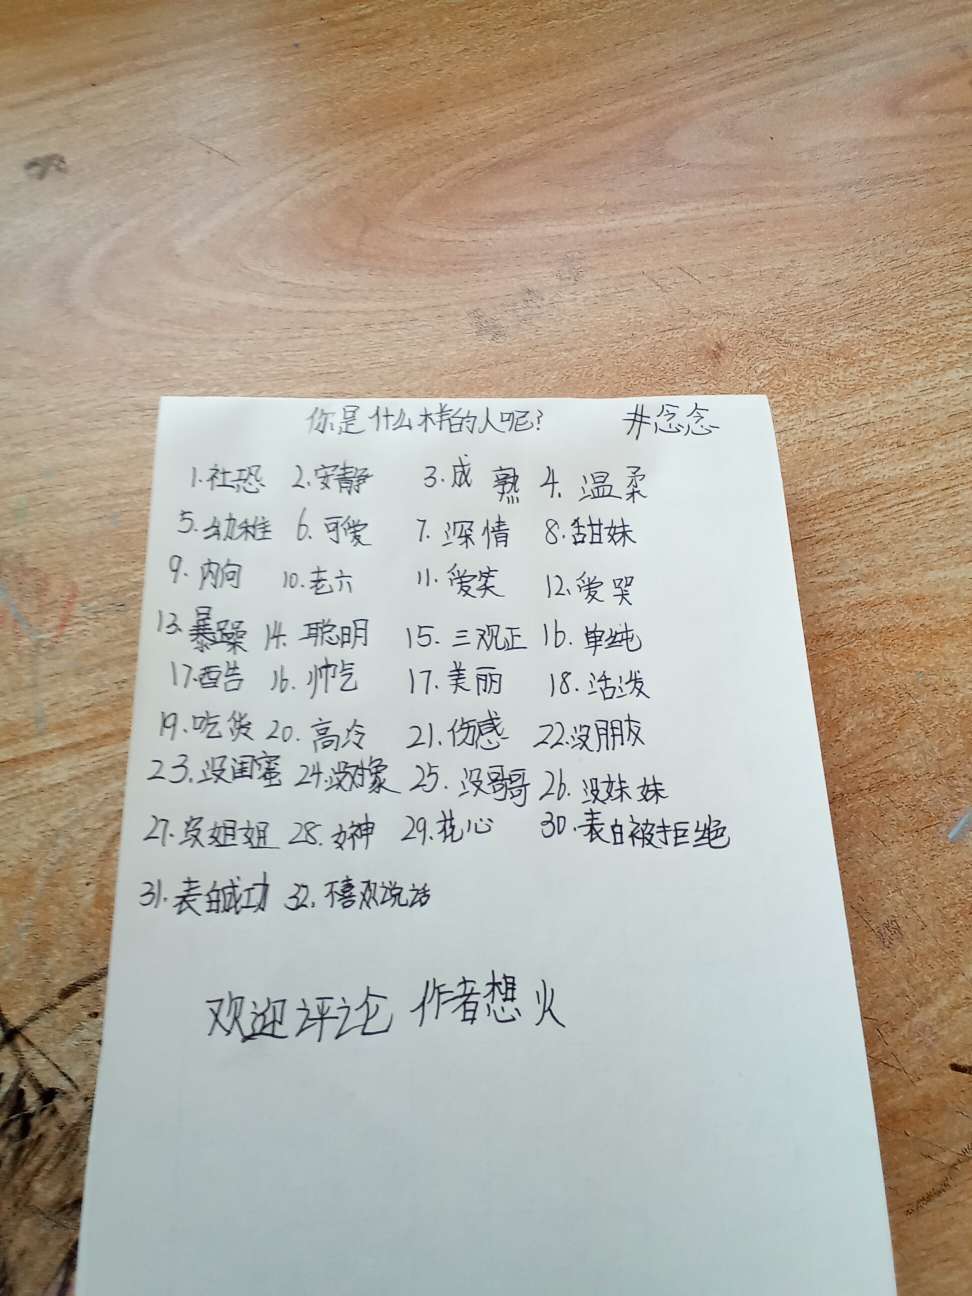 你是什么样的人呢? #念念
1.社恐 2.安静 3.成熟 4.温柔
5.幼稚 6.可爱 7.深情 8.甜妹
9.内向 10.老六 11.爱笑 12.爱哭
13.暴躁 14.聪明 15.三观正 16.单纯
17.酉告 16.帅气 17.美丽 18.活泼
19.吃货 20.高冷 21.伤感 22.没朋友
23.没闺蜜 24.没对象 25.没哥哥 26.没妹妹
27.没姐姐 28.女神 29.花心 30.表白被拒绝
31.表白成功 32.不喜欢说话
欢迎评论 作者想火